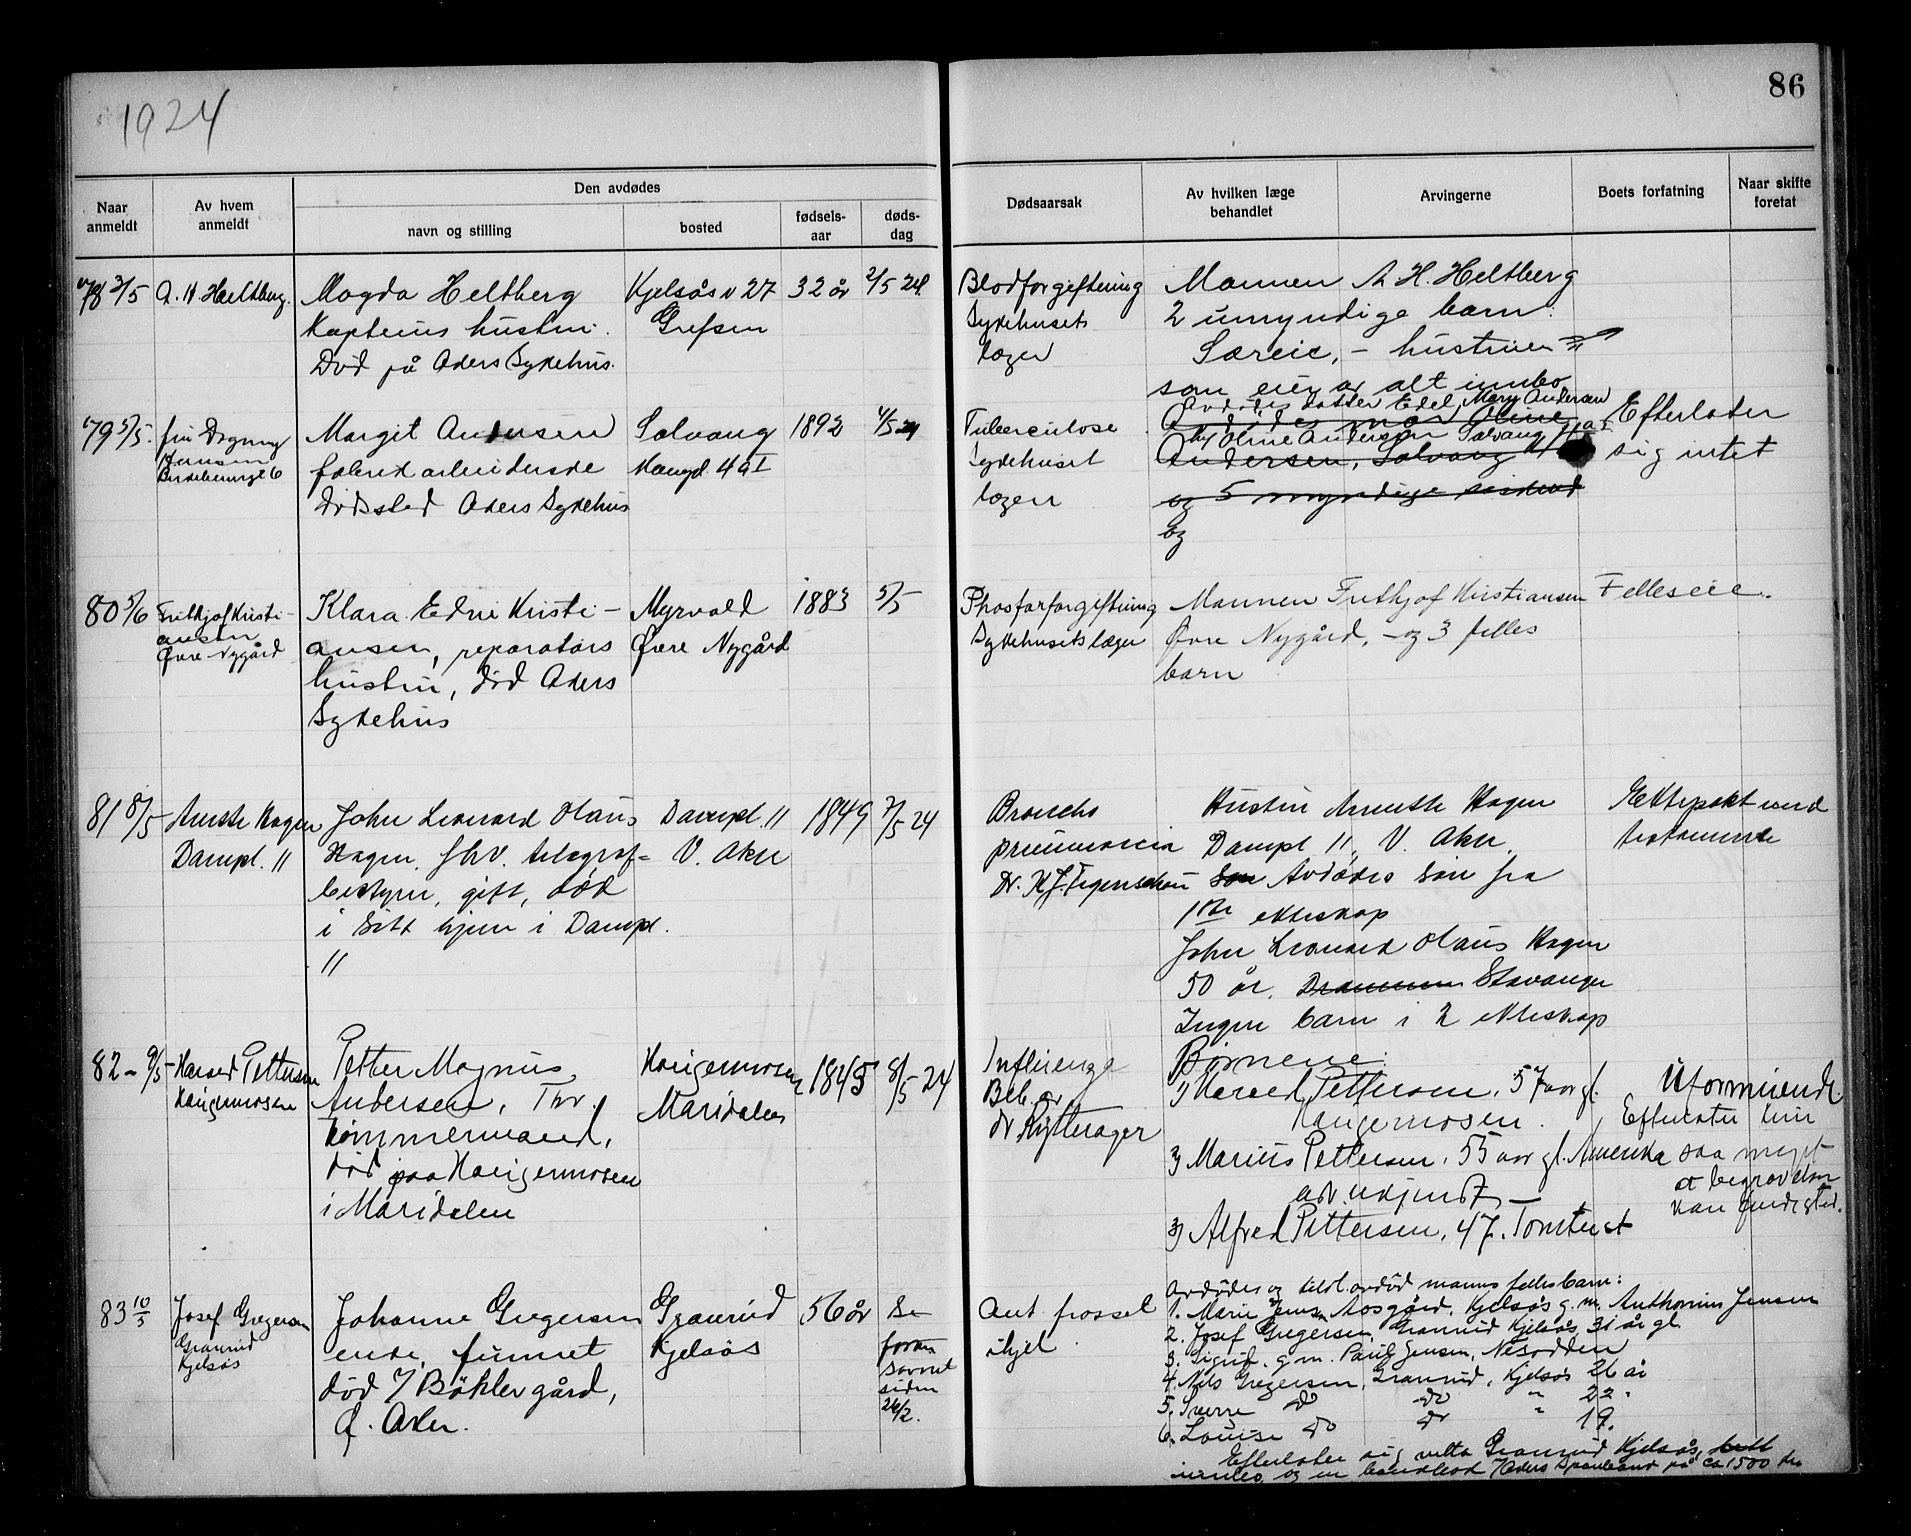 1924
86
Den avdødes
Naar anmeldt
Av hvem anmeldt
navn og stilling
bosted
fødsels-aar
døds-dag
Dødsaarsak
Av hvilken læge behandlet
Arvingerne
Boets forfatning
Naar skifte foretat
78 3/5 A. H. Heltberg. Magda Heltberg Kjelsås v 27 32 år 2/5 24. Blodforgiftning Mannen A. H. Heltberg
Kapteins hustru. Grefsen Sykehusets 2 umyndige barn.
Død på Akers Sykehus. læger Særeie, - hustruen
som eier av alt innbo
Avdødes datter Edel Mary Andersen
79 5/5. fru Dagny Margit Andersen Solvang 1892 4/5 24 Tuberculose Avdødes mor Oline Efterlater
Jensen
Oline Andersen Solvang
fabrikarbeiderske Haugd. 4a I Sykehuset Andersen, Solvang sig intet
dødssted Akers Sykehus lægen og 5 myndige søsken
og
80 5/6 Frithjof Kristi- Klara Edvi Kristi- Myrvold 1883 5/5 Phosforforgiftning Mannen Frithjof Kristiansen Felleseie.
ansen ansen, reparatørs Øvre Nygård Sykehusets læger Øvre Nygård, - og 3 felles
Øvre Nygård hustru, død Akers barn
Sykehus
81 8/5 Anette Hagen John Leonard Olaus Dampl. 11 1849 7/5 24 Broncho Hustru Anette Hagen Ektepakt med
Dampl. 11 Hagen, fhv. telegraf- V. Aker pneumonia Dampl 11, V. Aker. testamente
bestyrer, gift, død Dr. K. J. Figenschau Avdødes søn fra
i sitt hjem i Dampl. 1ste ekteskap
11 John Leonard Olaus Hagen
50 år, Drammen Stavanger
Ingen barn i 2 ekteskap
82 - 9/5 Harald Pettersen Petter Magnus Haugermosen 1845 8/5 24 Influenza Børnene:
Haugermosen Andersen, Fhv. Maridalen Beh. av 1) Harald Pettersen, 57 aar gl. Uformuende.
tømmermand, dr Rytterager Haugermosen. Efterlater kun
død paa Haugermosen 2) Marius Pettersen, 55 aar gl. Amerika saa meget
i Maridalen adr. ukjendt, - at begravelsen
3) Alfred Pettersen, 47, Tomter st kan
83 10/5 Josef Gregersen Johanne Gregersen Granrud 56 år Be- Ant. frosset Avdødes og tidl. avdød manns felles barn:
Granrud enke, funnet Kjelsås foran ihjel 1. Marie Jensen Aasgård, Kjelsås g. m. Anthonius Jensen
Kjelsås død i Bøhler gård, savnet 2. Josef Gregersen, Granrud Kjelsås, 31 år gl
Ø. Aker. siden 3. Sigrid. g. m. Paul Jensen, Nesodden
26/2. 4. Nils Gregersen, Granrud, Kjelsås 26 år
5. Sverre do do " 22 "
6. Louise do do " 19.
Efterlater sig Granrud Kjelsås,
og en bankbok Akers Sparebank på ca 1500 kr